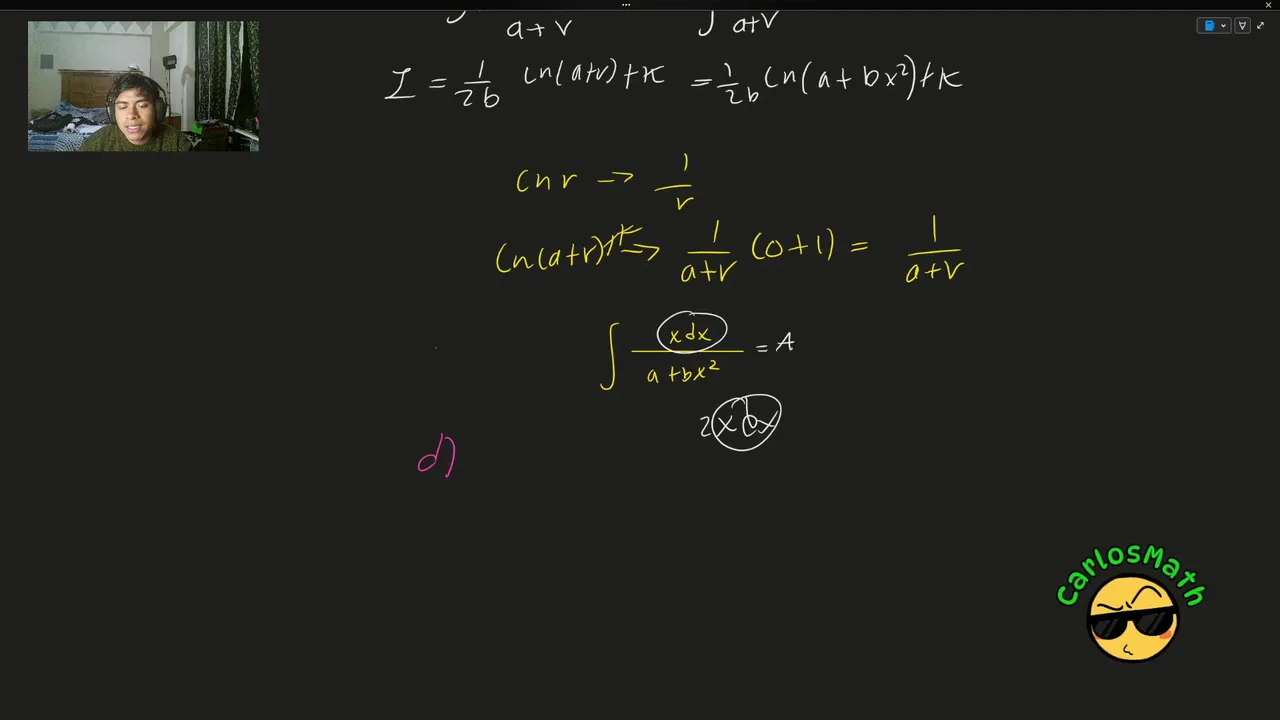 ∫ a+r ∫ a+r
I = 1/2b Ln(a+r)+K = 1/2b Ln(a+bx²)+K
Ln r → 1/r
Ln(a+r)+K → 1/a+r (0+1) = 1/a+r
∫ xdx/a+bx² = A
2xdx
d)
CarlosMath